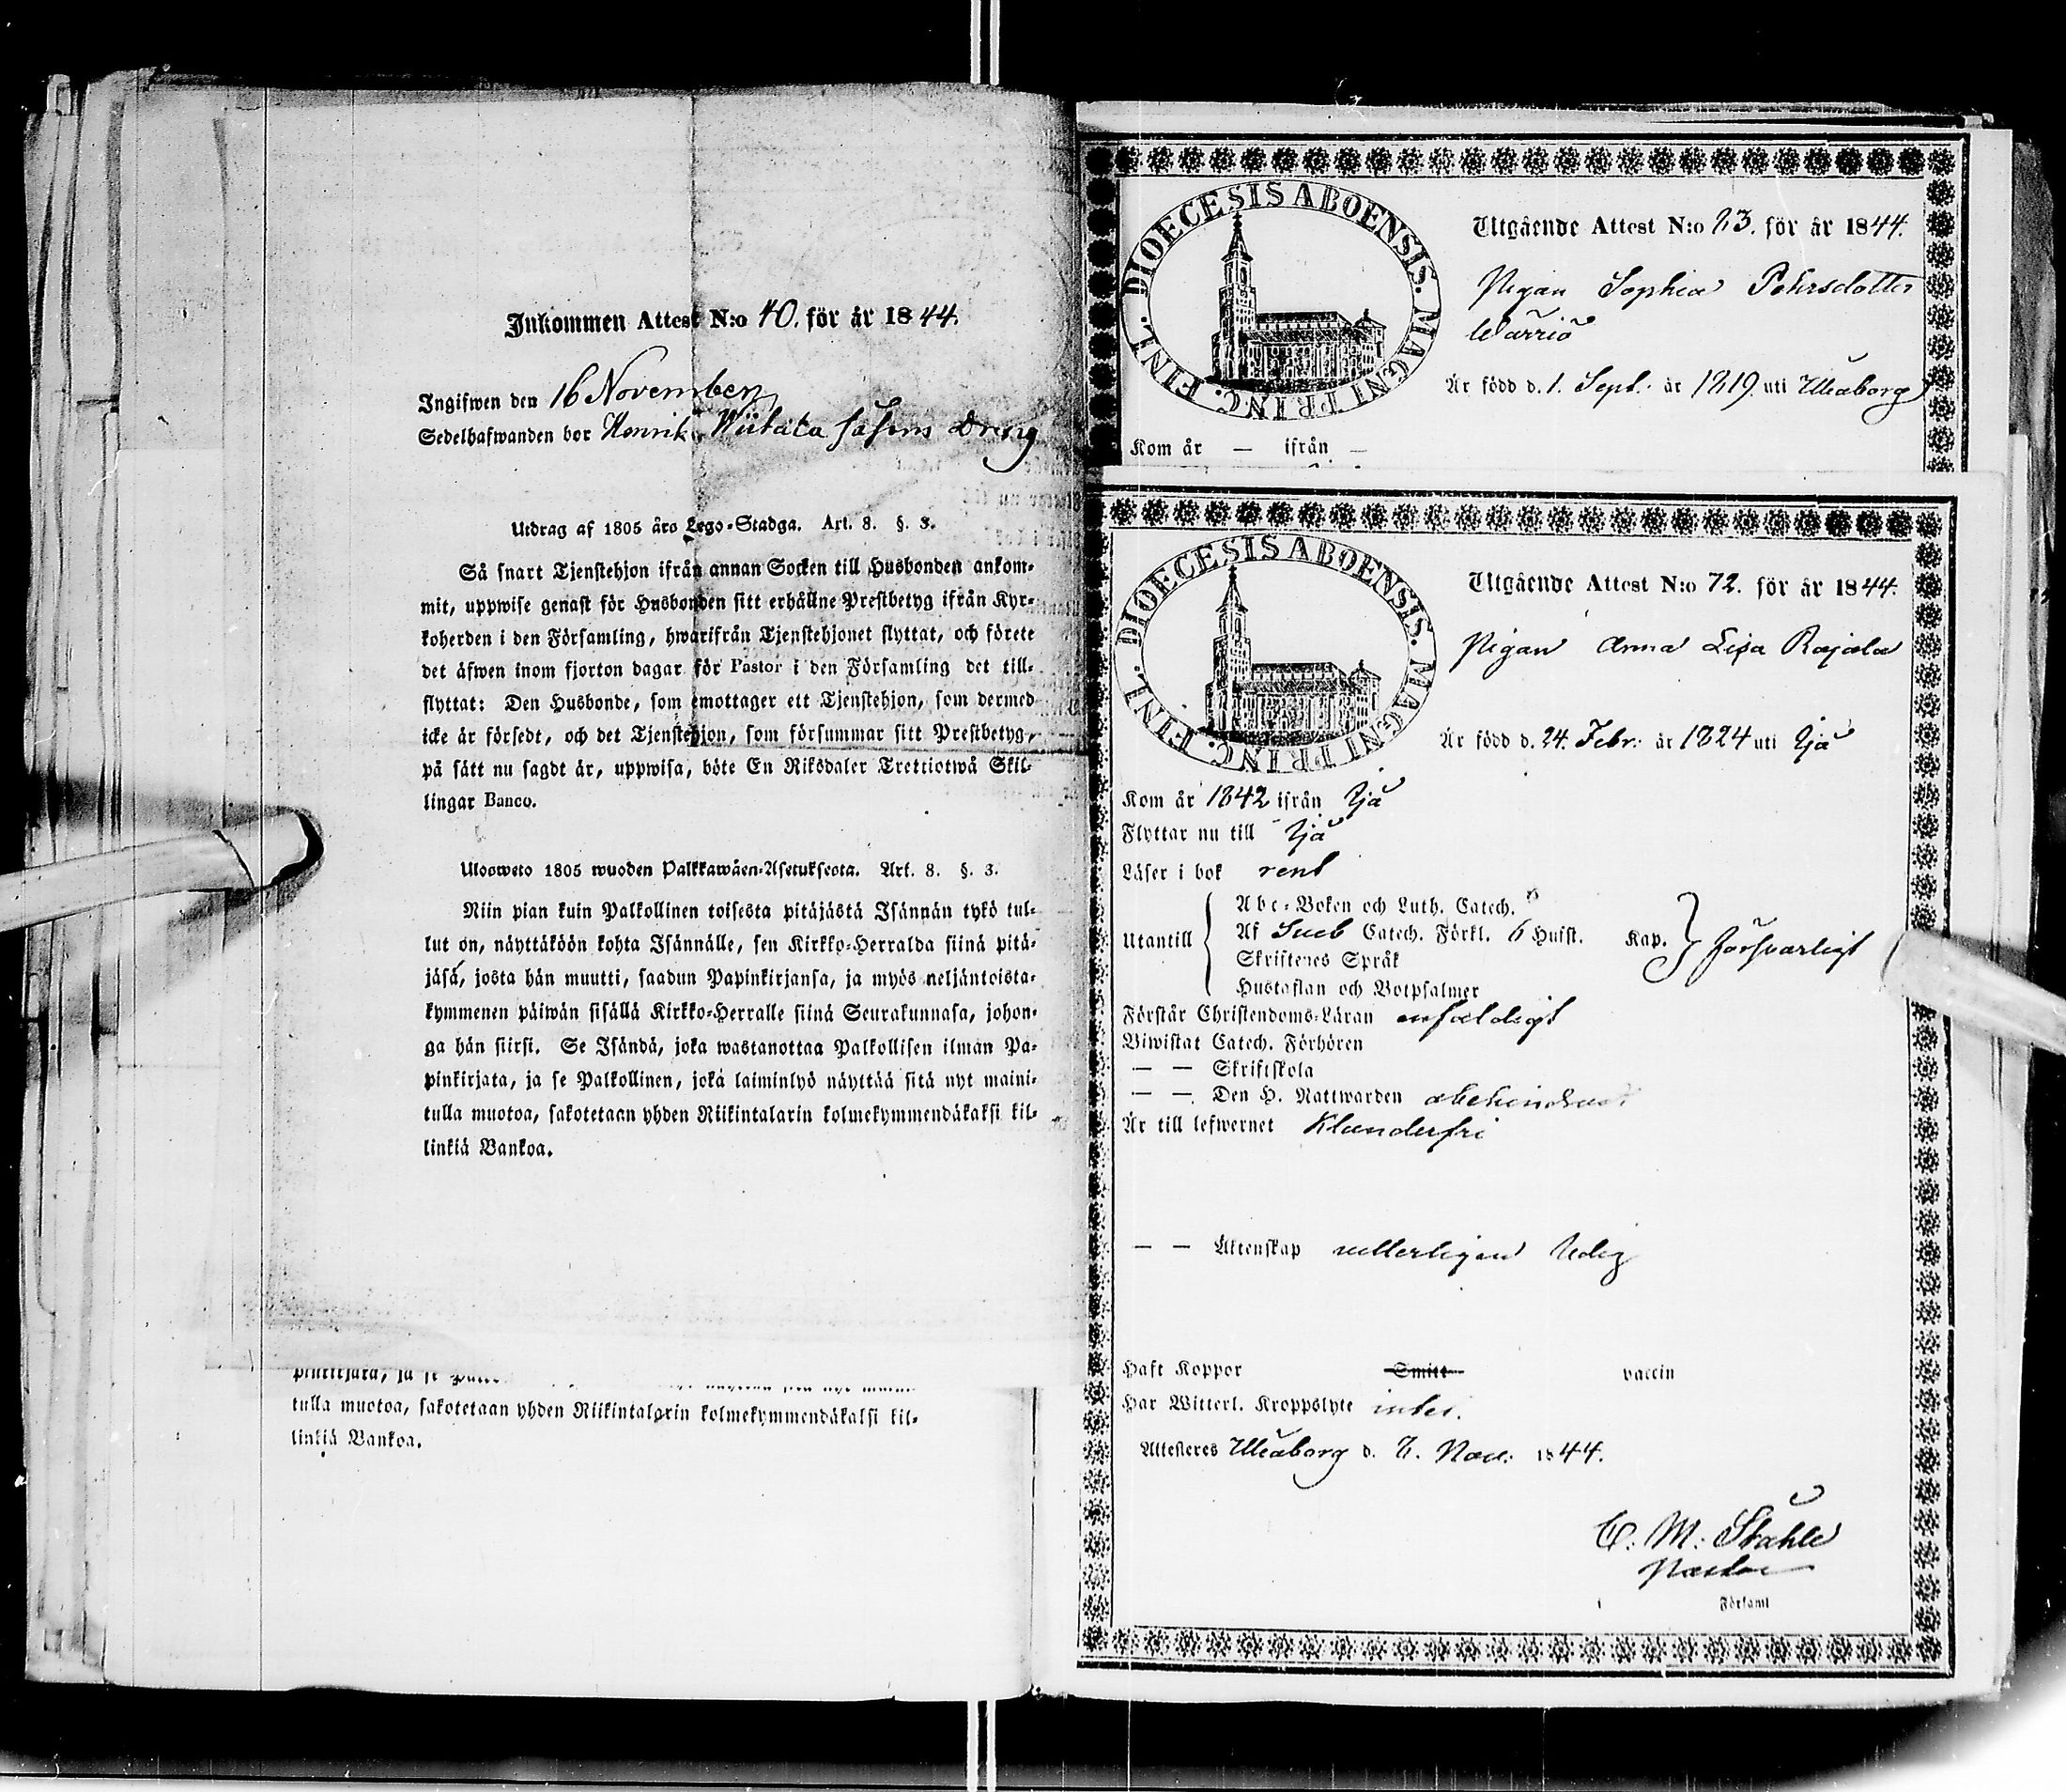 Inkommen Attest N:o 40. för år 1844.
Ingifwen den 16 November
Sedelhafwanden bor Henrik Wiitala såsom Dreng
Utdrag af 1805 års Lego-Stadga. Art. 8. §. 3.
Så snart Tjenstehjon ifrån annan Socken till Husbonden ankom-
mit, uppwise genast för Husbonden sitt erhållne Prestbetyg ifrån Kyr-
koherden i den Församling, hwarifrån Tjenstehjonet flyttat, och förete
det äfwen inom fjorton dagar för Pastor i den Församling det till-
flyttat: Den Husbonde, som emottager ett Tjenstehjon, som dermed
icke är försedt, och det Tjenstehjon, som försummar sitt Prestbetyg,
på sätt nu sagdt är, uppwisa, böte En Riksdaler Trettiotwå Skil-
lingar Banco.
Ulosweto 1805 wuoden Palkkawäen-Asetuksesta. Art. 8. §. 3.
Niin pian kuin Palkollinen toisesta pitäjästä Isännän tykö tul-
lut on, näyttäköön kohta Isännälle, sen Kirkko-Herralda siinä pitä-
jäsä, josta hän muutti, saadun Papinkirjansa, ja myös neljäntoista-
kymmenen päiwän sisällä Kirkko-Herralle siinä Seurakunnasa, johon-
ga hän siirsi. Se Isändä, joka wastanottaa Palkollisen ilman Pa-
pinkirjata, ja se Palkollinen, joka laiminlyö näyttää sitä nyt maini-
tulla muotoa, sakotetaan yhden Riikintalarin kolmekymmendäkaksi kil-
linkiä Bankoa.
pinkirjata, ja se
tulla muotoa, sakotetaan yhden Riikintalarin kolmekymmendäkaksi kil-
linkiä Bankoa.
DIOECESIS ABOENSIS. MAGNI PRINC. FINL.
Utgående Attest N:o 73. för år 1844.
Pigan Sophia Pehrsdotter
Wärriö
Är född d. 1. Sept. år 1819 uti Uleåborg
Kom år — ifrån —
DIOECESIS ABOENSIS. MAGNI PRINC. FINL.
Utgående Attest N:o 72. för år 1844.
Pigan Anna Lisa Rajala
Är född d. 24. Febr. år 1824 uti Ijå
Kom år 1842 ifrån Ijå
Flyttar nu till Ijå
Läser i bok rent
Utantill
Abc-Boken och Luth. Catech.
Af Sveb Catech. Förkl. 6 Hufst. Kap. försvarligt
Skriftenes Språk
Hustaflan och Botpsalmer
Förstår Christendoms-Läran enfaldigt
Biwistat Catech. Förhören
— — Skriftskola
— — Den H. Nattwarden obehindrad
Är till lefwernet Klanderfri
— — Äktenskap vetterligen ledig
Haft Koppor Smitt vaccin
Har Witterl. Kroppslyte intet.
Attesteres Uleåborg d. 7. Nov. 1844.
C. M. Ståhle
Pastor
i Församl